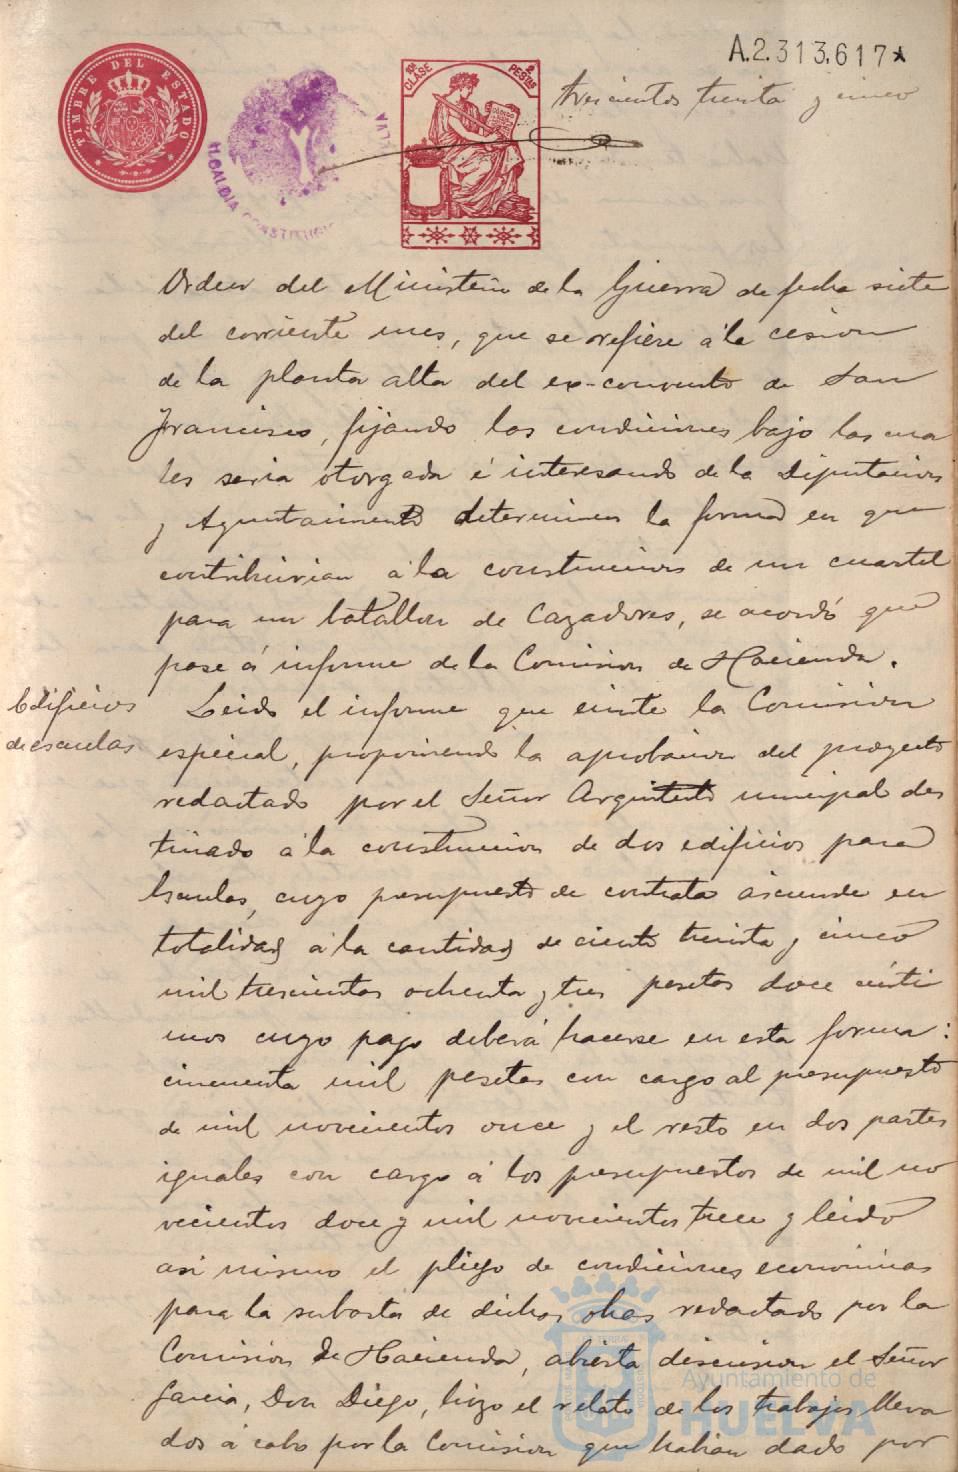 A.2.313.617*
TIMBRE DEL ESTADO
ALCALDIA CONSTITUCIO
10ª CLASE
2 PESETAS
trescientos treinta y cinco
Orden del Ministerio de la Guerra de fecha siete
del corriente mes, que se refiere á la cesion
de la planta alta del ex-convento de San
Francisco, fijando las condiciones bajo las cua
les seria otorgada é interesando de la Diputacion
y Ayuntamiento determinen la forma en que
contribuirian á la construccion de un cuartel
para un batallon de Cazadores, se acordó que
pase á informe de la Comision de Hacienda.
Edificios
de escuelas
Leido el informe que emite la Comision
especial, proponiendo la aprobacion del proyecto
redactado por el Señor Arquitecto municipal des
tinado á la construccion de dos edificios para
Escuelas, cuyo presupuesto de contrata asciende en
totalidad á la cantidad de ciento treinta y cinco
mil trescientas ochenta y tres pesetas doce cénti
mos cuyo pago deberá hacerse en esta forma:
cincuenta mil pesetas con cargo al presupuesto
de mil novecientos once y el resto en dos partes
iguales con cargo á los presupuestos de mil no
vecientos doce y mil novecientos trece y leido
asi mismo el pliego de condiciones economicas
para la subasta de dichas obras redactado por la
Comision de Hacienda, abierta discusion el Señor
Garcia, Don Diego, hizo el relato de los trabajos lleva
dos á cabo por la Comision que habian dado por
Ayuntamiento de
HUELVA